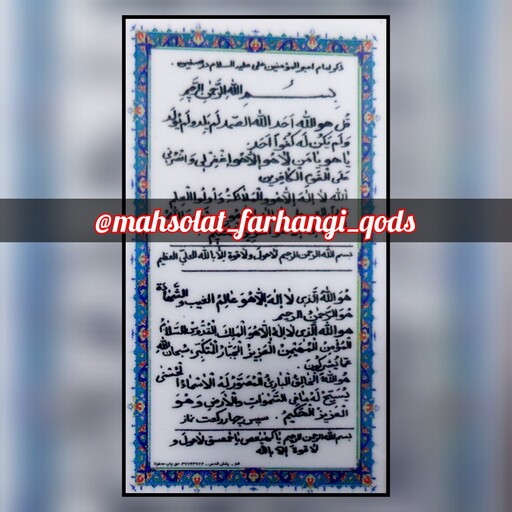 ذکر امام امیرالمؤمنین علی علیه السلام در صفین .
بسم الله الرحمن الرحیم
قل هو الله احد الله الصمد لم یلد ولم یولد
ولم یکن له کفوا احد
یا هو یا من لا هو الا هو اغفرلی وانصرنی
علی القوم الکافرین
الله لا اله الا هو والملائکة وأولوا العلم
@mahsolat_farhangi_qods
بسم الله الرحمن الرحیم لاحول ولا قوة الا بالله العلی العظیم
هو الله الذی لا اله الا هو عالم الغیب و الشهادة
هو الرحمن الرحیم
هو الله الذی لا اله الا هو الملک القدوس السلام
المؤمن المهیمن العزیز الجبار المتکبر سبحان الله
عما یشرکون
هو الله الخالق البارئ المصور له الاسماء الحسنی
یسبح له ما فی السموات والارض وهو
العزیز الحکیم . سپس چهار رکعت نماز
بسم الله الرحمن الرحیم یا کهیعص یا حمعسق لاحول و
لا قوة الا بالله